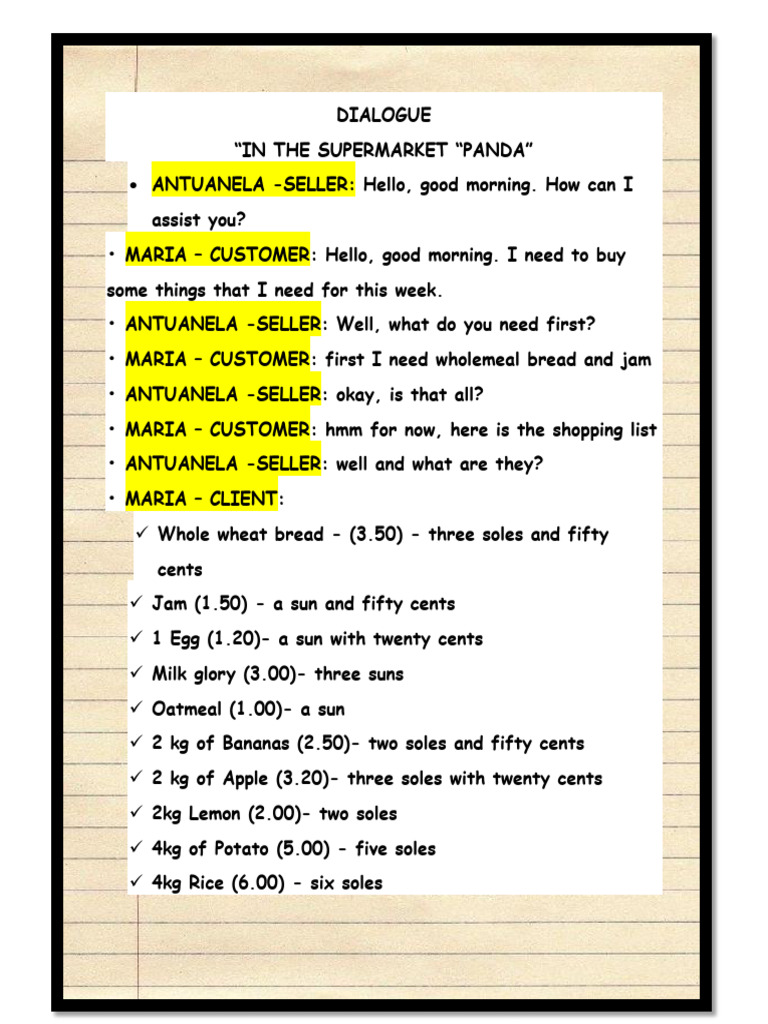 DIALOGUE
“IN THE SUPERMARKET “PANDA”
• ANTUANELA -SELLER: Hello, good morning. How can I
assist you?
• MARIA – CUSTOMER: Hello, good morning. I need to buy
some things that I need for this week.
• ANTUANELA -SELLER: Well, what do you need first?
• MARIA – CUSTOMER: first I need wholemeal bread and jam
• ANTUANELA -SELLER: okay, is that all?
• MARIA – CUSTOMER: hmm for now, here is the shopping list
• ANTUANELA -SELLER: well and what are they?
• MARIA – CLIENT:
✓ Whole wheat bread - (3.50) - three soles and fifty
cents
✓ Jam (1.50) - a sun and fifty cents
✓ 1 Egg (1.20)- a sun with twenty cents
✓ Milk glory (3.00)- three suns
✓ Oatmeal (1.00)- a sun
✓ 2 kg of Bananas (2.50)- two soles and fifty cents
✓ 2 kg of Apple (3.20)- three soles with twenty cents
✓ 2kg Lemon (2.00)- two soles
✓ 4kg of Potato (5.00) - five soles
✓ 4kg Rice (6.00) - six soles